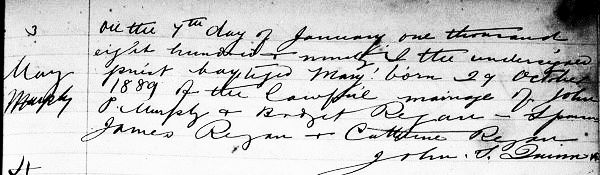 3
on the 7th day of January one thousand
eight hundred & ninety I the undersigned
May
priest baptized Mary born 29 October
Murphy
1889 of the lawful marriage of John
P Murphy & Bridget Regan - Spons
James Regan & Catherine Regan
John. S. Quinn